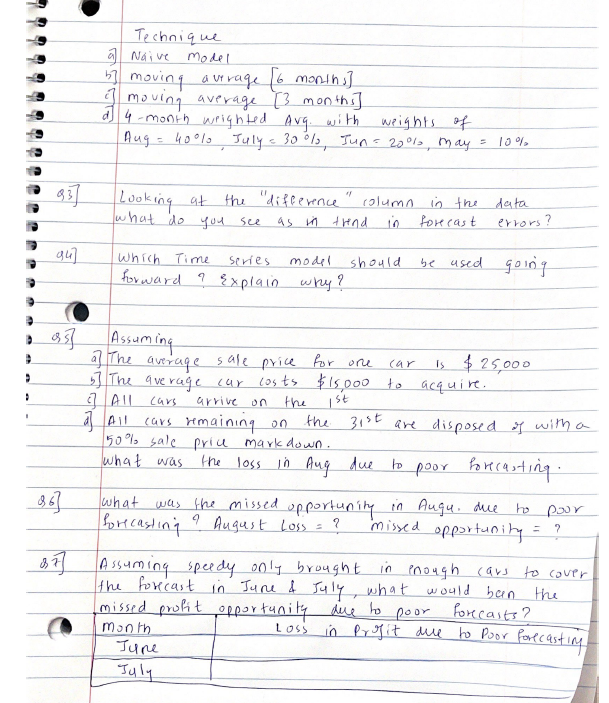 Technique
a] Naive Model
b] moving average [6 months]
c] moving average [3 months]
d] 4-month weighted Avg. with weights of
Aug = 40%, July = 30%, Jun = 20%, may = 10%
Q3] Looking at the "difference" column in the data
what do you see as in trend in forecast errors?
Q4] which Time series model should be used going
forward? Explain why?
Q5] Assuming
a] The average sale price for one car is $25,000
b] The average car costs $15,000 to acquire.
c] All cars arrive on the 1st
d] All cars remaining on the 31st are disposed of with a
50% sale price markdown.
what was the loss in Aug due to poor forecasting.
Q6] what was the missed opportunity in Augu. due to poor
forecasting? August Loss = ? missed opportunity = ?
Q7] Assuming speedy only brought in enough cars to cover
the forecast in June & July, what would been the
missed profit opportunity due to poor forecasts?
month Loss in Profit due to Poor forecasting
June
July